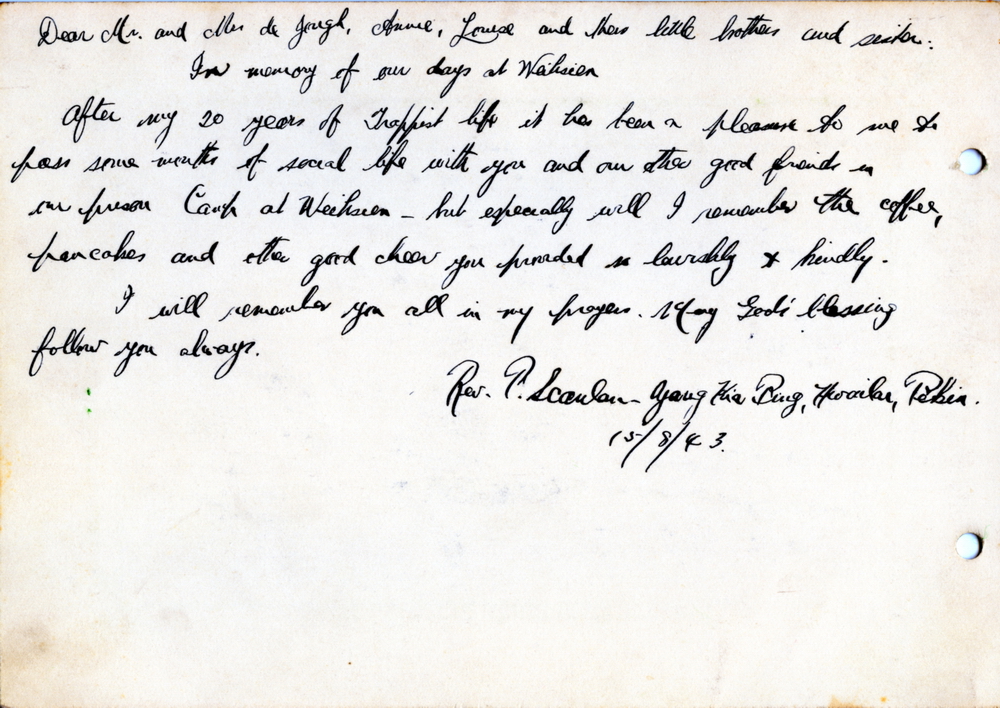 Dear Mr. and Mrs de Jongh, Annie, Louise and their little brothers and sister.
In memory of our days at Weihsien
After my 20 years of Trappist life it has been a pleasure to me to
pass some months of social life with you and our other good friends in
our prison Camp at Weihsien – but especially will I remember the coffee,
pancakes and other good cheer you provided so lavishly & kindly.
I will remember you all in my prayers. May God's blessing
follow you always.
Rev. P. Scanlan – Yang Kia Ping, Hwailai, Pekin.
15/8/43.